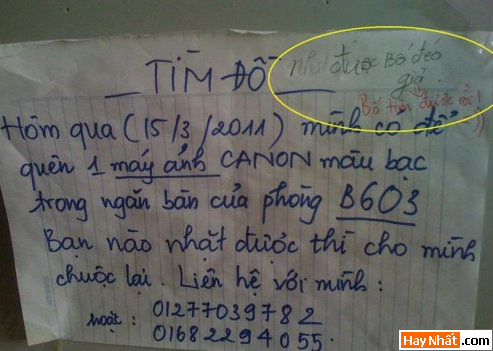 TÌM ĐỒ
nhặt được Bố đéo
giả
Bố tìm được rồi!
Hôm qua (15/3/2011) mình có để
quên 1 máy ảnh CANON màu bạc
trong ngăn bàn của phòng B603
Bạn nào nhặt được thì cho mình
chuộc lại. Liên hệ với mình:
01277039782
hoặc: 01682294055.
HayNhat.com